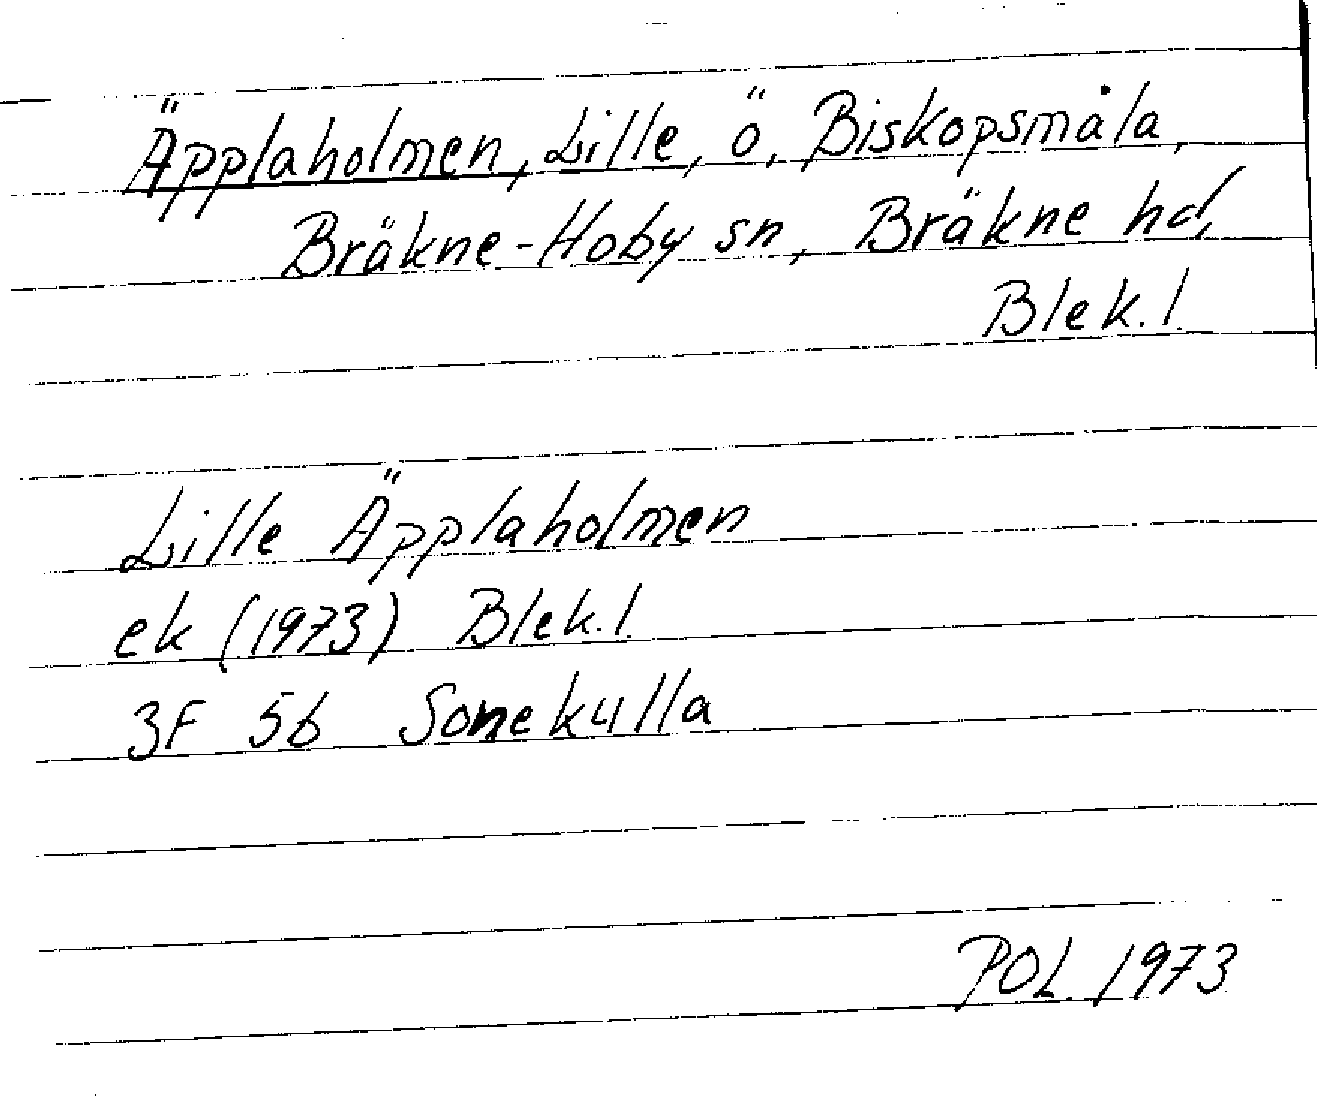 Äpplaholmen, Lille, ö, Biskopsmåla,
Bräkne-Hoby sn, Bräkne hd,
Blek. l.
Lille Äpplaholmen
ek (1973) Blek. l.
3F 5b Sonekulla
POL 1973